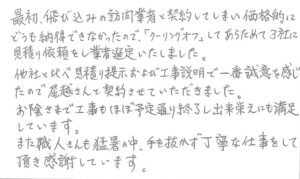 最初、飛び込みの訪問業者と契約してしまい価格的に
どうも納得できなかったので、「クーリングオフ」してあらためて3社に
見積り依頼をし業者選定いたしました。
他社と比べ見積り提示および工事説明で一番誠意を感じ
たので屋越さんと契約させていただきました。
お陰さまで工事もほぼ予定通り終了し出来栄えにも満足
しています。
また職人さんも猛暑の中、手も抜かず丁寧な仕事をして
頂き感謝しています。